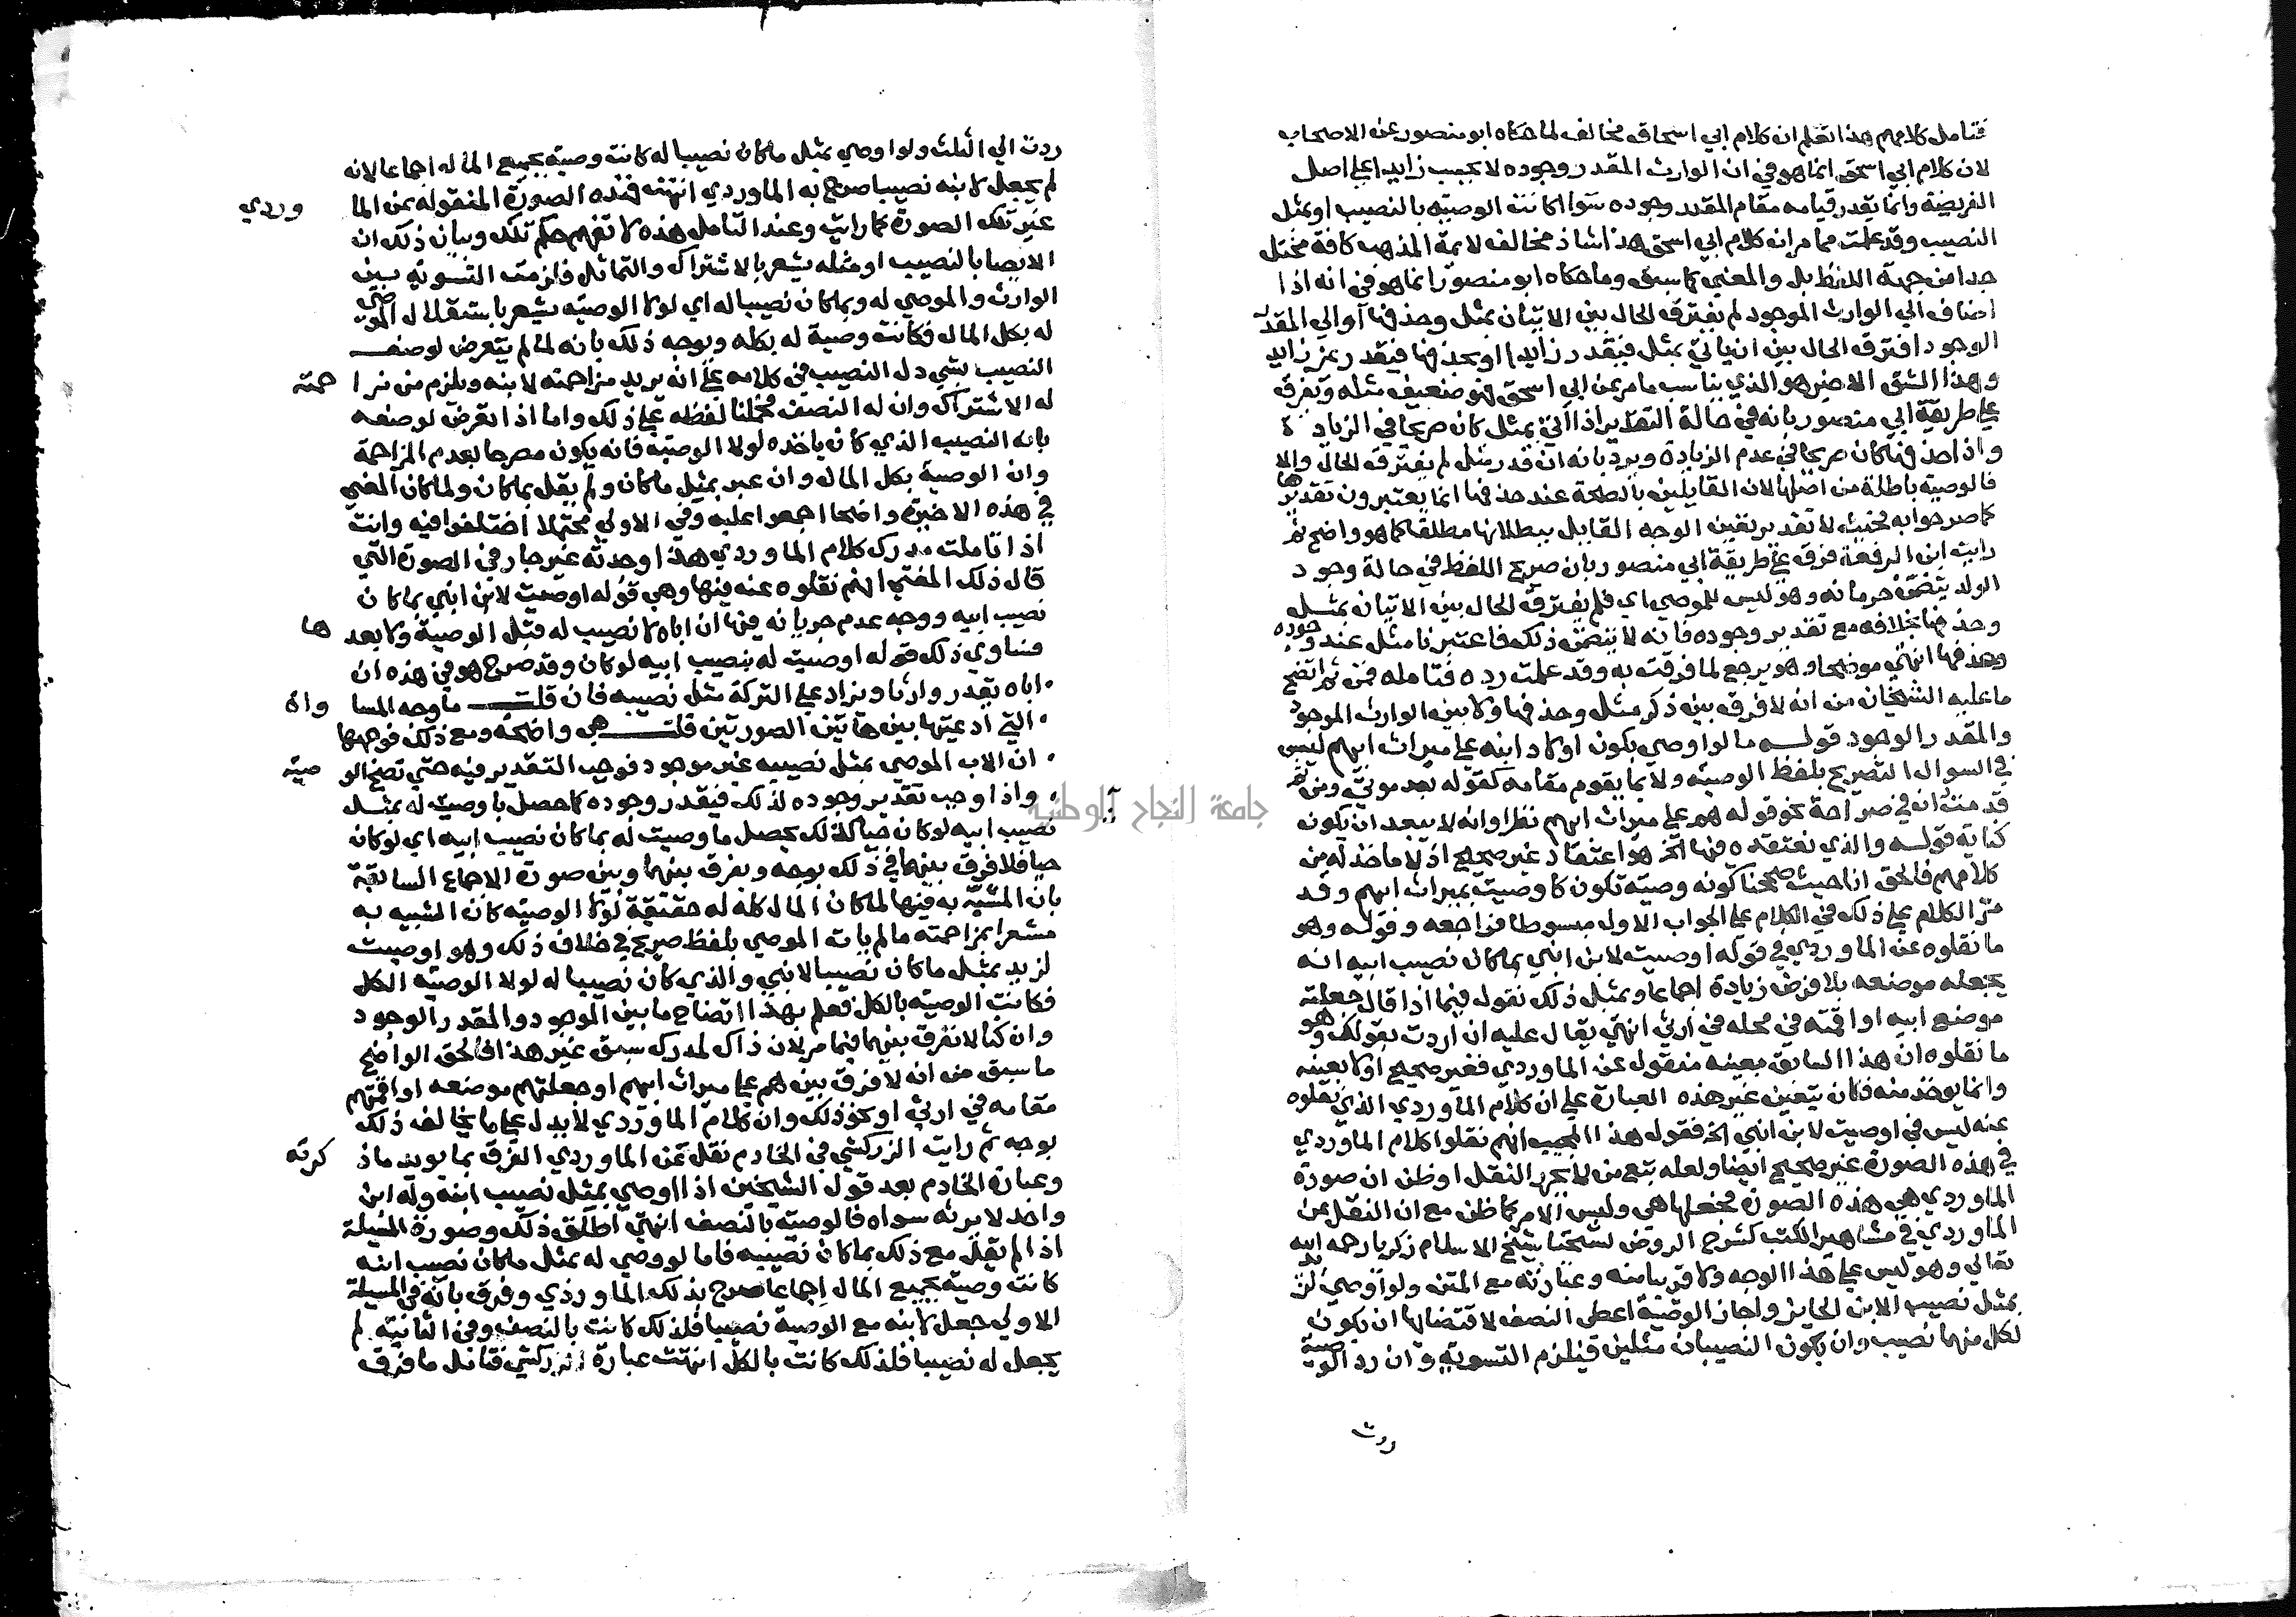 فتامل كلامهم هذا تعلم ان كلام ابي اسحاق مخالف لما حكاه ابو منصور عن الاصحاب
لان كلام ابي اسحق انما هو في ان الوارث المقدر وجوده لا يحسب زايدا على اصل
الفريضة وانما يقدر قيامه مقام المقدر وجوده سوا اكانت الوصية بالنصيب او بمثل
النصيب وقد علمت مما مر ان كلام ابي اسحق هذا شاذ مخالف لايمة المذهب كافة مختل
جدا من جهة اللفظ بل والمعني كما سبق وما حكاه ابو منصور انما هو في انه اذا
اضاف الي الوارث الموجود لم يفترق الحال بين الاتيان بمثل وحذفها او الي المقدر
الوجود افترق الحال بين ان ياتي بمثل فيقدر زايدا او يحذفها فيقدر بمن زايد
وهذا الشق الاخير هو الذي يناسب ما مر عن ابي اسحق فهو ضعيف مثله ويفرق
علي طريقة ابي منصور بانه في حالة التقدير اذا اتي بمثل كان صريحا في الزيادة
واذا حذفها كان صريحا في عدم الزيادة ويرد بانه ان قدر مثل لم يفترق الحال والا
فالوصية باطلة من اصلها لان القايلين بالصحة عند حذفها انما يعتبرون تقديرها
كما صرحوا به فحيث لا تقدير يتعين الوجه القايل ببطلانها مطلقا كما هو واضح ثم
رايت ابن الرفعة فرق علي طريقة ابي منصور بان صريح اللفظ في حالة وجود
الولد يتضمن حرمانه وهو ليس للموصي اي فلم يفترق الحال بين الاتيان بمثل
وحذفها بخلافه مع تقدير وجوده فانه لا يتضمن ذلك فاعتبرنا مثل عند وجوده
وحذفها انتهي موضحا وهو يرجع لما فرقت به وقد علمت رده فتامله فمن ثم اتضح
ما عليه الشيخان من انه لا فرق بين ذكر مثل وحذفها ولا بين الوارث الموجود
والمقدر الوجود قوله ما لو اوصي بكون اولاد ابنه علي ميراث ابيهم ليس
في السوال التصريح بلفظ الوصية ولا بما يقوم مقامه كقوله بعد موتي ومن ثم
قدمت ان في صراحة نحو قوله هم علي ميراث ابيهم نظرا وانه لا يبعد ان يكون
كناية قوله والذي نعتقده فيها الخ هو اعتقاد غير صحيح اذ لا ماخذ له من
كلامهم فالحق انا حيث صححنا كونه وصية تكون كاوصيت بميراث ابيهم وقد
مر الكلام علي ذلك في الكلام علي الجواب الاول مبسوطا فراجعه وقوله وهو
ما نقلوه عن الماوردي في قوله اوصيت لابن ابني بما كان نصيب ابيه انه
يجعله موضعه بلا فرض زيادة اجماعا وبمثل ذلك نقول فيما اذا قال جعلته
موضع ابيه او اقمته في محله في ارثي انتهي يقال عليه ان اردت بقولك وهو
ما نقلوه ان هذا السابق بعينه منقول عن الماوردي فغير صحيح او لا بعينه
وانما يوخذ منه فكان يتعين غير هذه العبارة علي ان كلام الماوردي الذي نقلوه
عنه ليس في اوصيت لابن ابني الخ فقول هذا المجيب انهم نقلوا كلام الماوردي
في هذه الصورة غير صحيح ايضا ولعله تبع من لا يحرر النقل او ظن ان صورة
الماوردي هي هذه الصورة فجعلها هي وليس الامر كما ظن مع ان النقل عن
الماوردي في مشاهير الكتب كشرح الروض لشيخنا شيخ الاسلام زكريا رحمه الله
تعالي وهو ليس علي هذا الوجه ولا قريبا منه وعبارته مع المتن ولو اوصي لزيد
بمثل نصيب الابن الحايز واجاز الوصية اعطى النصف لاقتضايها ان يكون
لكل منهما نصيب وان يكون النصيبان مثلين فيلزم التسوية وان رد الوصية
ردت
ردت الي الثلث ولو اوصي بمثل ما كان نصيبا له كانت وصية بجميع المال اجماعا لانه
لم يجعل لابنه نصيبا صرح به الماوردي انتهت فهذه الصورة المنقولة عن الماوردي
غير تلك الصورة كما رايت وعند التامل هذه لا تفهم حكم تلك وبيان ذلك ان
الايصا بالنصيب او مثله يشعر بالاشتراك والتماثل فلزمت التسوية بين
الوارث والموصي له وبما كان نصيبا له اي لولا الوصية يشعر باستقلال الموصي
له بكل المال فكانت وصية له بكله ويوجه ذلك بانه لما لم يتعرض لوصف
النصيب بشي دل النصيب في كلامه علي انه يريد مزاحمته لابنه ويلزم من مزاحمته
له الاشتراك وان له النصف فحملنا لفظه علي ذلك واما اذا تعرض لوصفه
بانه النصيب الذي كان ياخذه لولا الوصية فانه يكون مصرحا بعدم المزاحمة
وان الوصية بكل المال وان عبر بمثل ما كان ولم يقل بما كان ولما كان المعني
في هذه الاخيرة واضحا اجمعوا عليه وفي الاولي محتملا اختلفوا فيه وانت
اذا تاملت مدرك كلام الماوردي هذا وجدته غير جار في الصورة التي
قال ذلك المفتي انهم نقلوه عنه فيها وهي قوله اوصيت لابن ابني بما كان
نصيب ابيه ووجه عدم جريانه فيها ان اباه لا نصيب له قبل الوصية ولا بعدها
فساوي ذلك قوله اوصيت له بنصيب ابيه لو كان وقد صرح هو في هذه ان
اباه يقدر وارثا ويزاد علي التركة مثل نصيبه فان قلت ما وجه المساواة
التي ادعيتها بين هاتين الصورتين قلت هي واضحة ومع ذلك فوجهها
ان الاب الموصي بمثل نصيبه غير موجود فوجب التقدير فيه حتي تصح الوصية
واذا وجب تقدير وجوده لذلك فيقدر وجوده كما حصل باوصيت له بمثل
نصيب ابيه لو كان حيا كذلك يحصل باوصيت له بما كان نصيب ابيه اي لو كان
حيا فلا فرق بينهما في ذلك بوجه ويفرق بينهما وبين صورة الاجماع السابقة
بان المشبه به فيها لما كان المال كله له حقيقة لولا الوصية كان الشبيه به
مشعرا بمزاحمته ما لم يات الموصي بلفظ صريح في خلاف ذلك وهو اوصيت
لزيد بمثل ما كان نصيبا لابني والذي كان نصيبا له لولا الوصية الكل
فكانت الوصية بالكل فعلم بهذا اتضاح ما بين الموجود والمقدر الوجود
وان كنا لا نفرق بينهما فيما مر لان ذاك لمدرك سبق غير هذا فالحق الواضح
ما سبق من انه لا فرق بين هم علي ميراث ابيهم او جعلتهم موضعه او اقمتهم
مقامه في ارثي او نحو ذلك وان كلام الماوردي لا يدل علي ما يخالف ذلك
بوجه ثم رايت الزركشي في الخادم نقل عن الماوردي الفرق بما يويد ما ذكرته
وعبارة الخادم بعد قول الشيخين اذا اوصي بمثل نصيب ابنه وله ابن
واحد لا يرثه سواه فالوصية بالنصف انتهي اطلق ذلك وصورة المسيلة
اذا لم يقل مع ذلك بما كان نصيبه فاما لو وصي له بمثل ما كان نصيب ابنه
كانت وصية بجميع المال اجماعا صرح بذلك الماوردي وفرق بانه في المسيلة
الاولي جعل لابنه مع الوصية نصيبا فلذلك كانت بالنصف وفي الثانية لم
يجعل له نصيبا فلذلك كانت بالكل انتهت عبارة الزركشي فتامل ما فرق
جامعة النجاح الوطنية